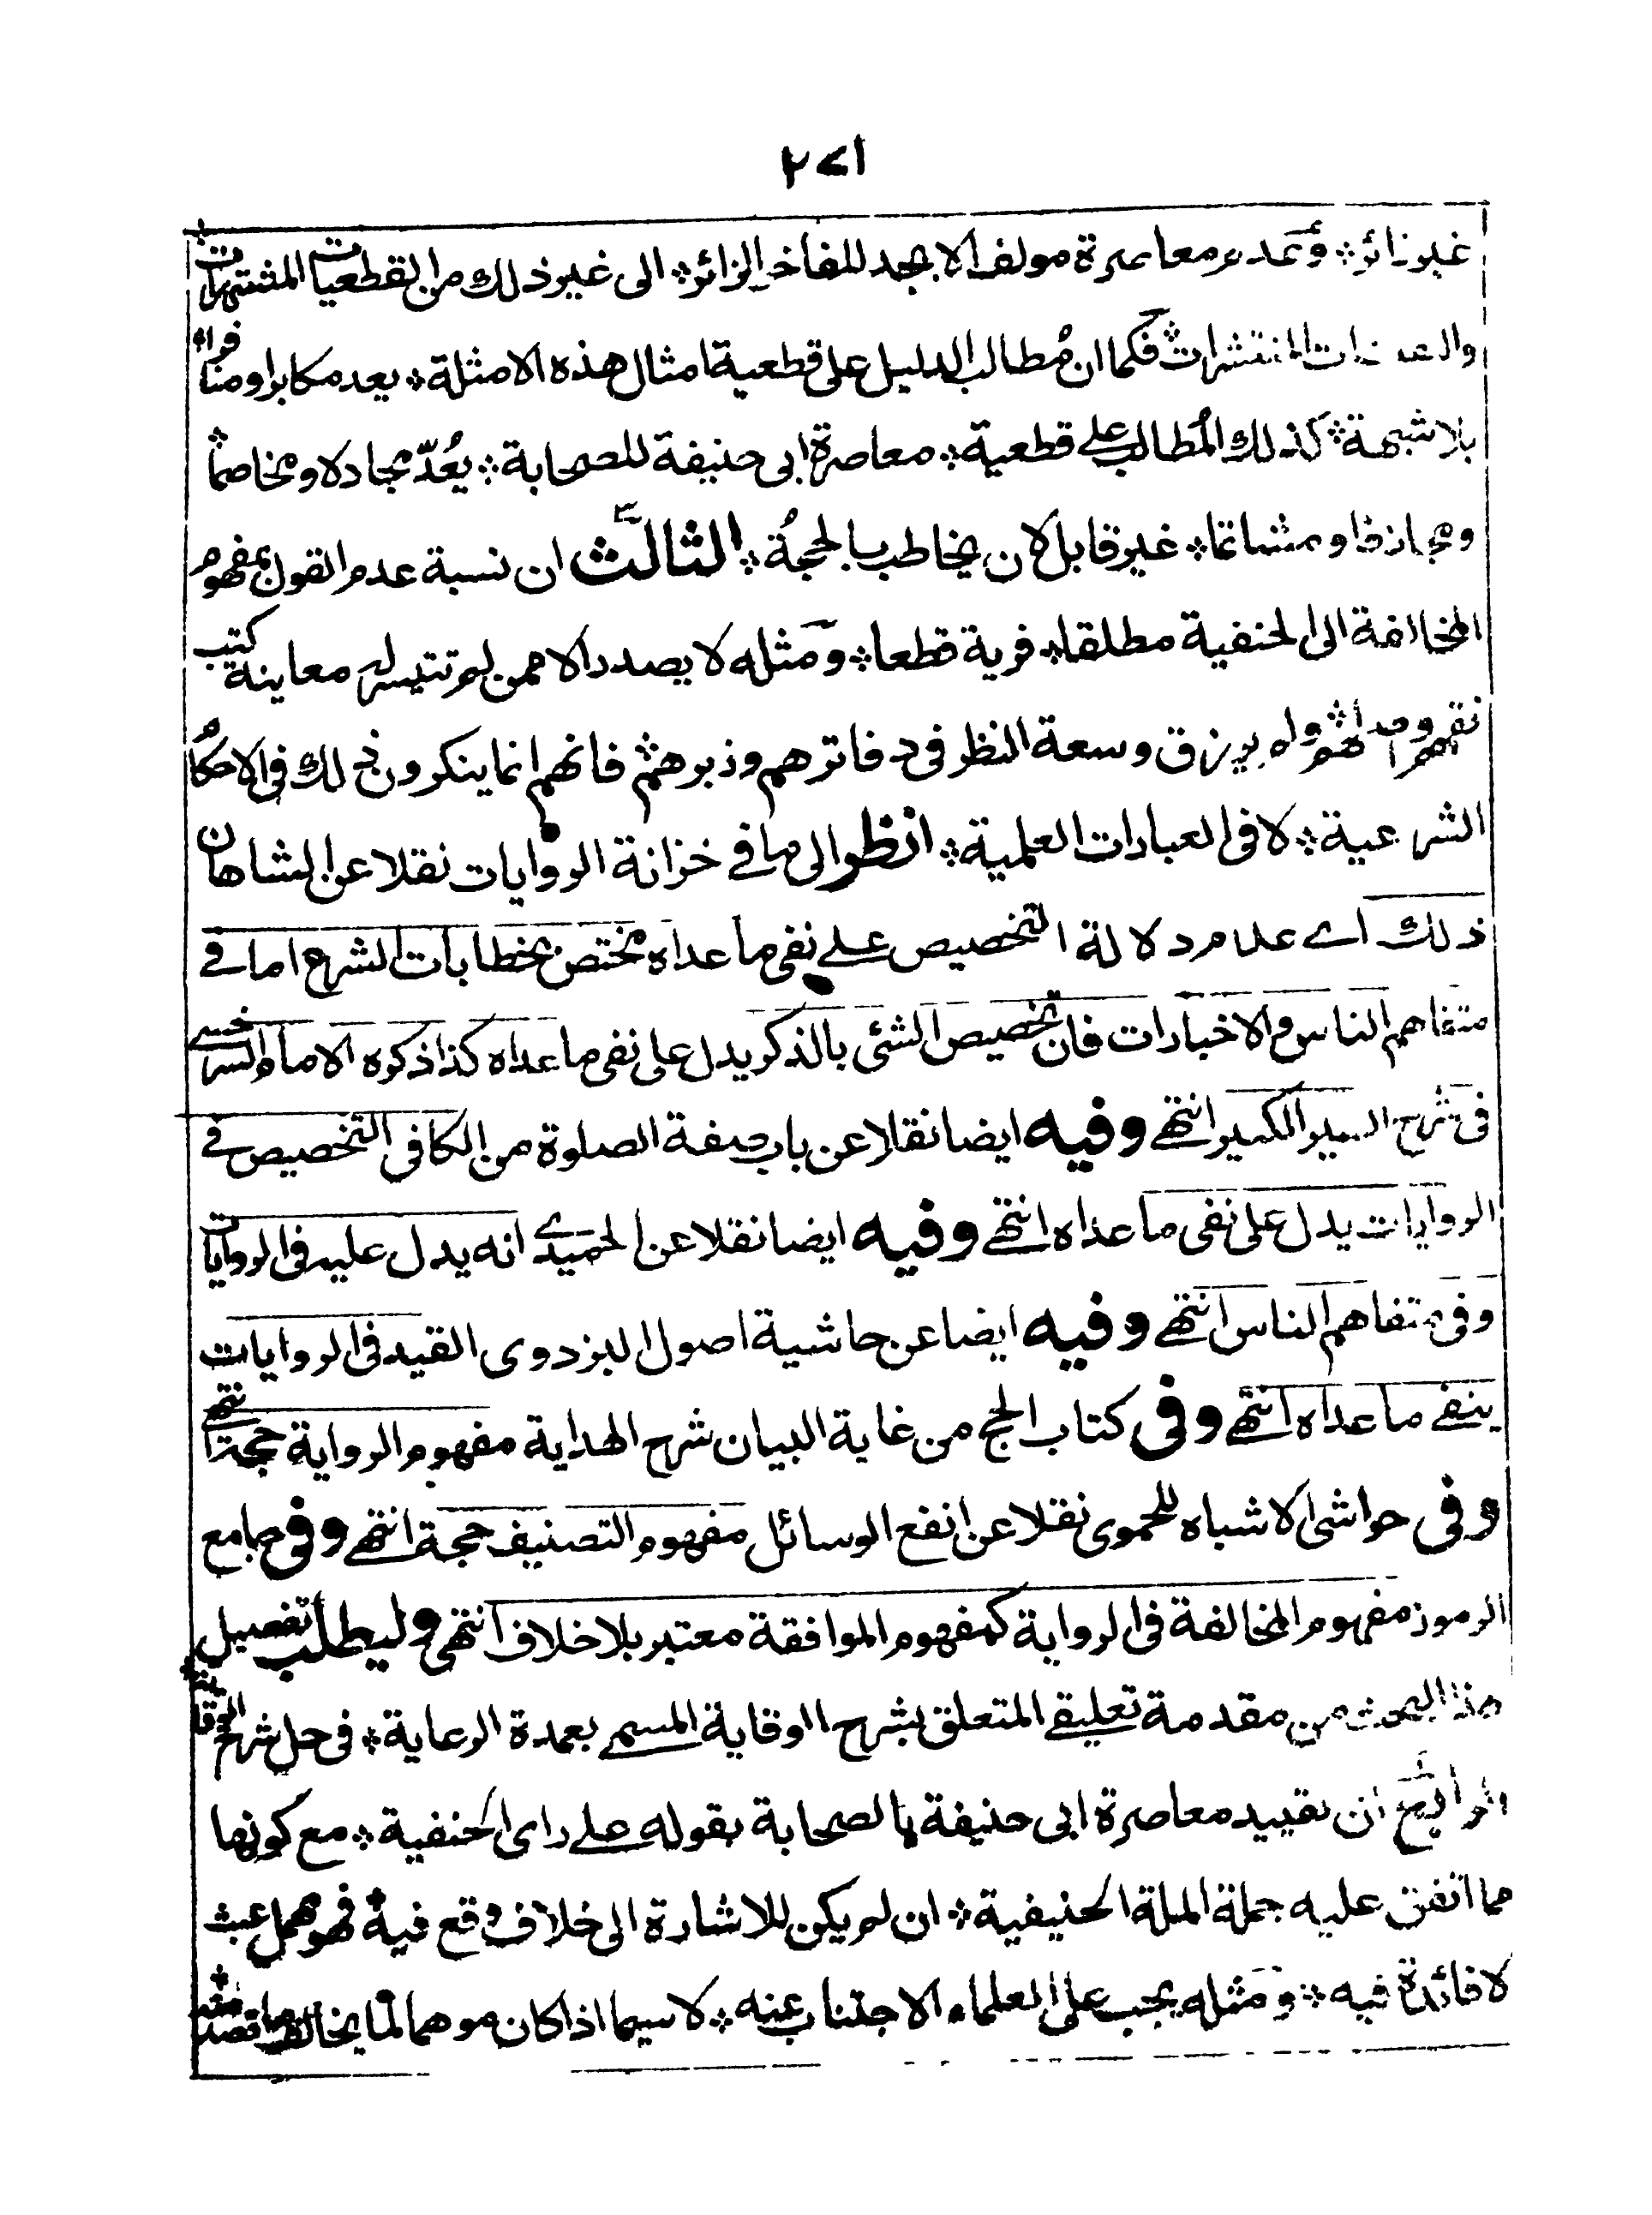 ٢٧١
غير زائر ؞ وَعدم معاصرة مولف الابجد للفاخر الزائر ؞ الى غير ذلك من القطعيات المشتهرات
المنتشرات ؞ فَكما ان مُطالب الدليل على قطعية امثال هذه الامثلة ؞ يعد مكابرا ومنافرا
بلا شبهة ؞ كذلك المُطالب على قطعية ؞ معاصرة ابى حنيفة للصحابة ؞ يُعَدّ مجادلا ومخاصما ؞
ومجازفا ومشاتما ؞ غير قابل لان يخاطب بالحجة ؞ الثالث ان نسبة عدم القول بمفهوم
المخالفة الى الحنفية مطلقا ؞ فرية قطعا ؞ وَمثله لا يصدر الا ممن لم تتيسر له معاينة كتب
ولم يرزق وسعة النظر فى دفاترهم وزبرهم ؞ فانهم انما ينكرون ذلك فى الاحكام
الشرعية ؞ لا فى العبارات العلمية ؞ انظر الى ما فے خزانة الروايات نقلا عن الشاهان
ذلك اے عدم دلالة التخصيص علے نفى ما عداه مختص بخطابات الشرع اما فے
متفاهم الناس والاخبارات فان تخصيص الشئى بالذكر يدل على نفى ما عداه كذا ذكره الامام السرخسے
فى شرح السير الكبير انتهے وفيه ايضا نقلا عن باب صفة الصلوة من الكافى التخصيص فے
الروايات يدل على نفى ما عداه انتهے وفيه ايضا نقلا عن الحميدے انه يدل عليه فى الروايات
وفى متفاهم الناس انتهے وفيه ايضا عن حاشية اصول البزدوى القيد فى الروايات
ينفے ما عداه انتهے وفى كتاب الحج من غاية البيان شرح الهداية مفهوم الرواية حجة انتهے
وفى حواشى الاشباه للحموى نقلا عن انفع الوسائل مفهوم التصنيف حجة انتهے وفى جامع
الرموز مفهوم المخالفة فى الرواية كمفهوم الموافقة معتبر بلا خلاف انتهى وليطلب تفصيل
هذا البحث من مقدمة تعليقے المتعلق بشرح الوقاية المسمے بعمدة الرعاية ؞ فى حل شرح الوقاية ؞
الرابع ان تقييد معاصرة ابى حنيفة بالصحابة بقوله علے راى الحنفية ؞ مع كونها
مما اتفق عليه جملة الملة الحنيفية ؞ ان لم يكن للاشارة الى خلاف وقع فيه ؞ فهو مهمل عبث
لا فائدة فيه ؞ وَمثله يجب على العلماء الاجتناب عنه ؞ لا سيما اذا كان موهما لما يخالف ما قصد منه ؞